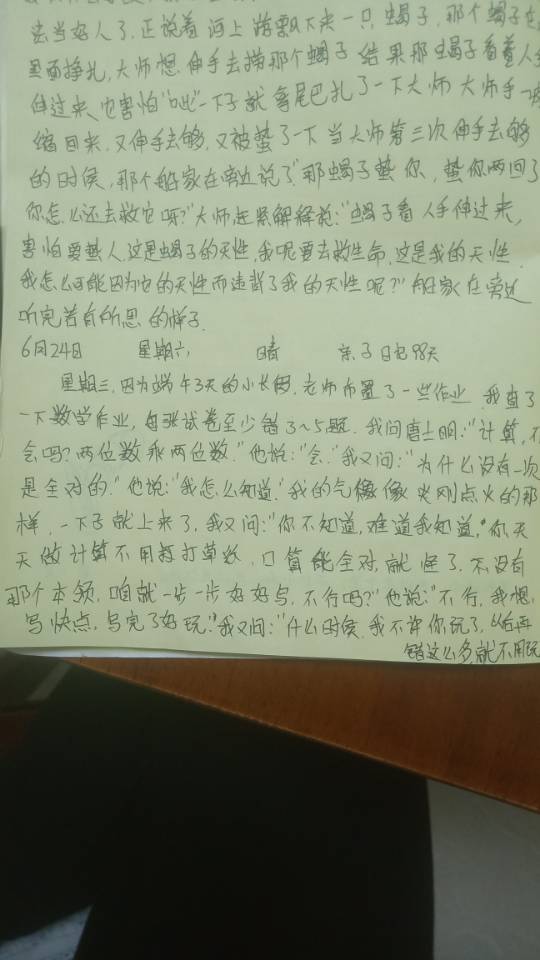 去当好人了。正说着河上游飘下来一只蝎子,那个蝎子在
里面挣扎,大师想伸手去捞那个蝎子结果那蝎子看着人手
伸过来,也害怕"叱"一下子就拿尾巴扎了一下大师大师手一疼
缩回来,又伸手去够,又被蛰了一下当大师第三次伸手去够
的时候,那个船家在旁边说了"那蝎子蛰你,蛰你两回了
你怎么还去救它呀?"大师赶紧解释说:"蝎子看人手伸过来,
害怕要蛰人,这是蝎子的天性,我呢要去救生命,这是我的天性
我怎么可能因为它的天性而违背了我的天性呢?"船家在旁边
听完若有所思的样子。
6月24日 星期六 晴 亲子日记98天
星期三,因为端午3天的小长假,老师布置了一些作业,我查了
一下数学作业,每张试卷至少错了~5题,我问唐士明:"计算,不
会吗?两位数乘两位数。"他说:"会。"我又问:"为什么没有一次
是全对的。"他说:"我怎么知道。"我的气像像炎刚点火的那
样,一下子就上来了,我又问:"你不知道,难道我知道,"你天
天做计算不用打草纸,口算能全对,就怪了,不没有
那个本领,咱就一步一步好好写,不行吗?"他说:"不行,我想
写快点,写完了好玩。"我又问:"什么时候,我不许你玩了,以后再
错这么多,就不用玩